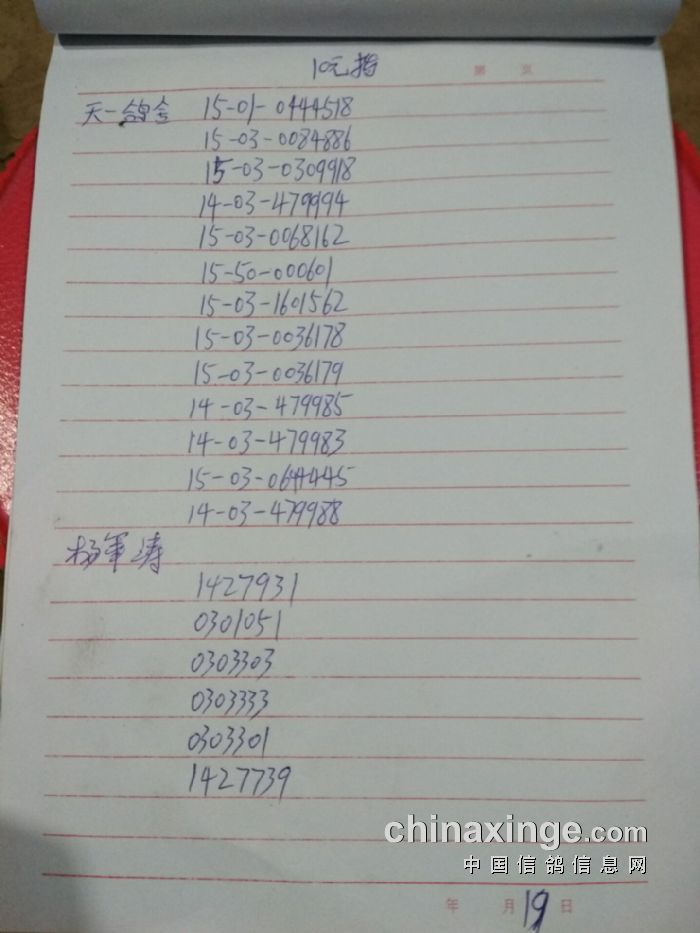 10元指
第 页
天一鸽舍 15-01-0444518
15-03-0084886
15-03-0309918
14-03-479994
15-03-0068162
15-50-000601
15-03-1601562
15-03-0036178
15-03-0036179
14-03-479985
14-03-479983
15-03-0644445
14-03-479988
杨军涛
1427931
0301051
0303303
0303333
0303301
1427739
chinaxinge.com
中国信鸽信息网
年 月 19 日